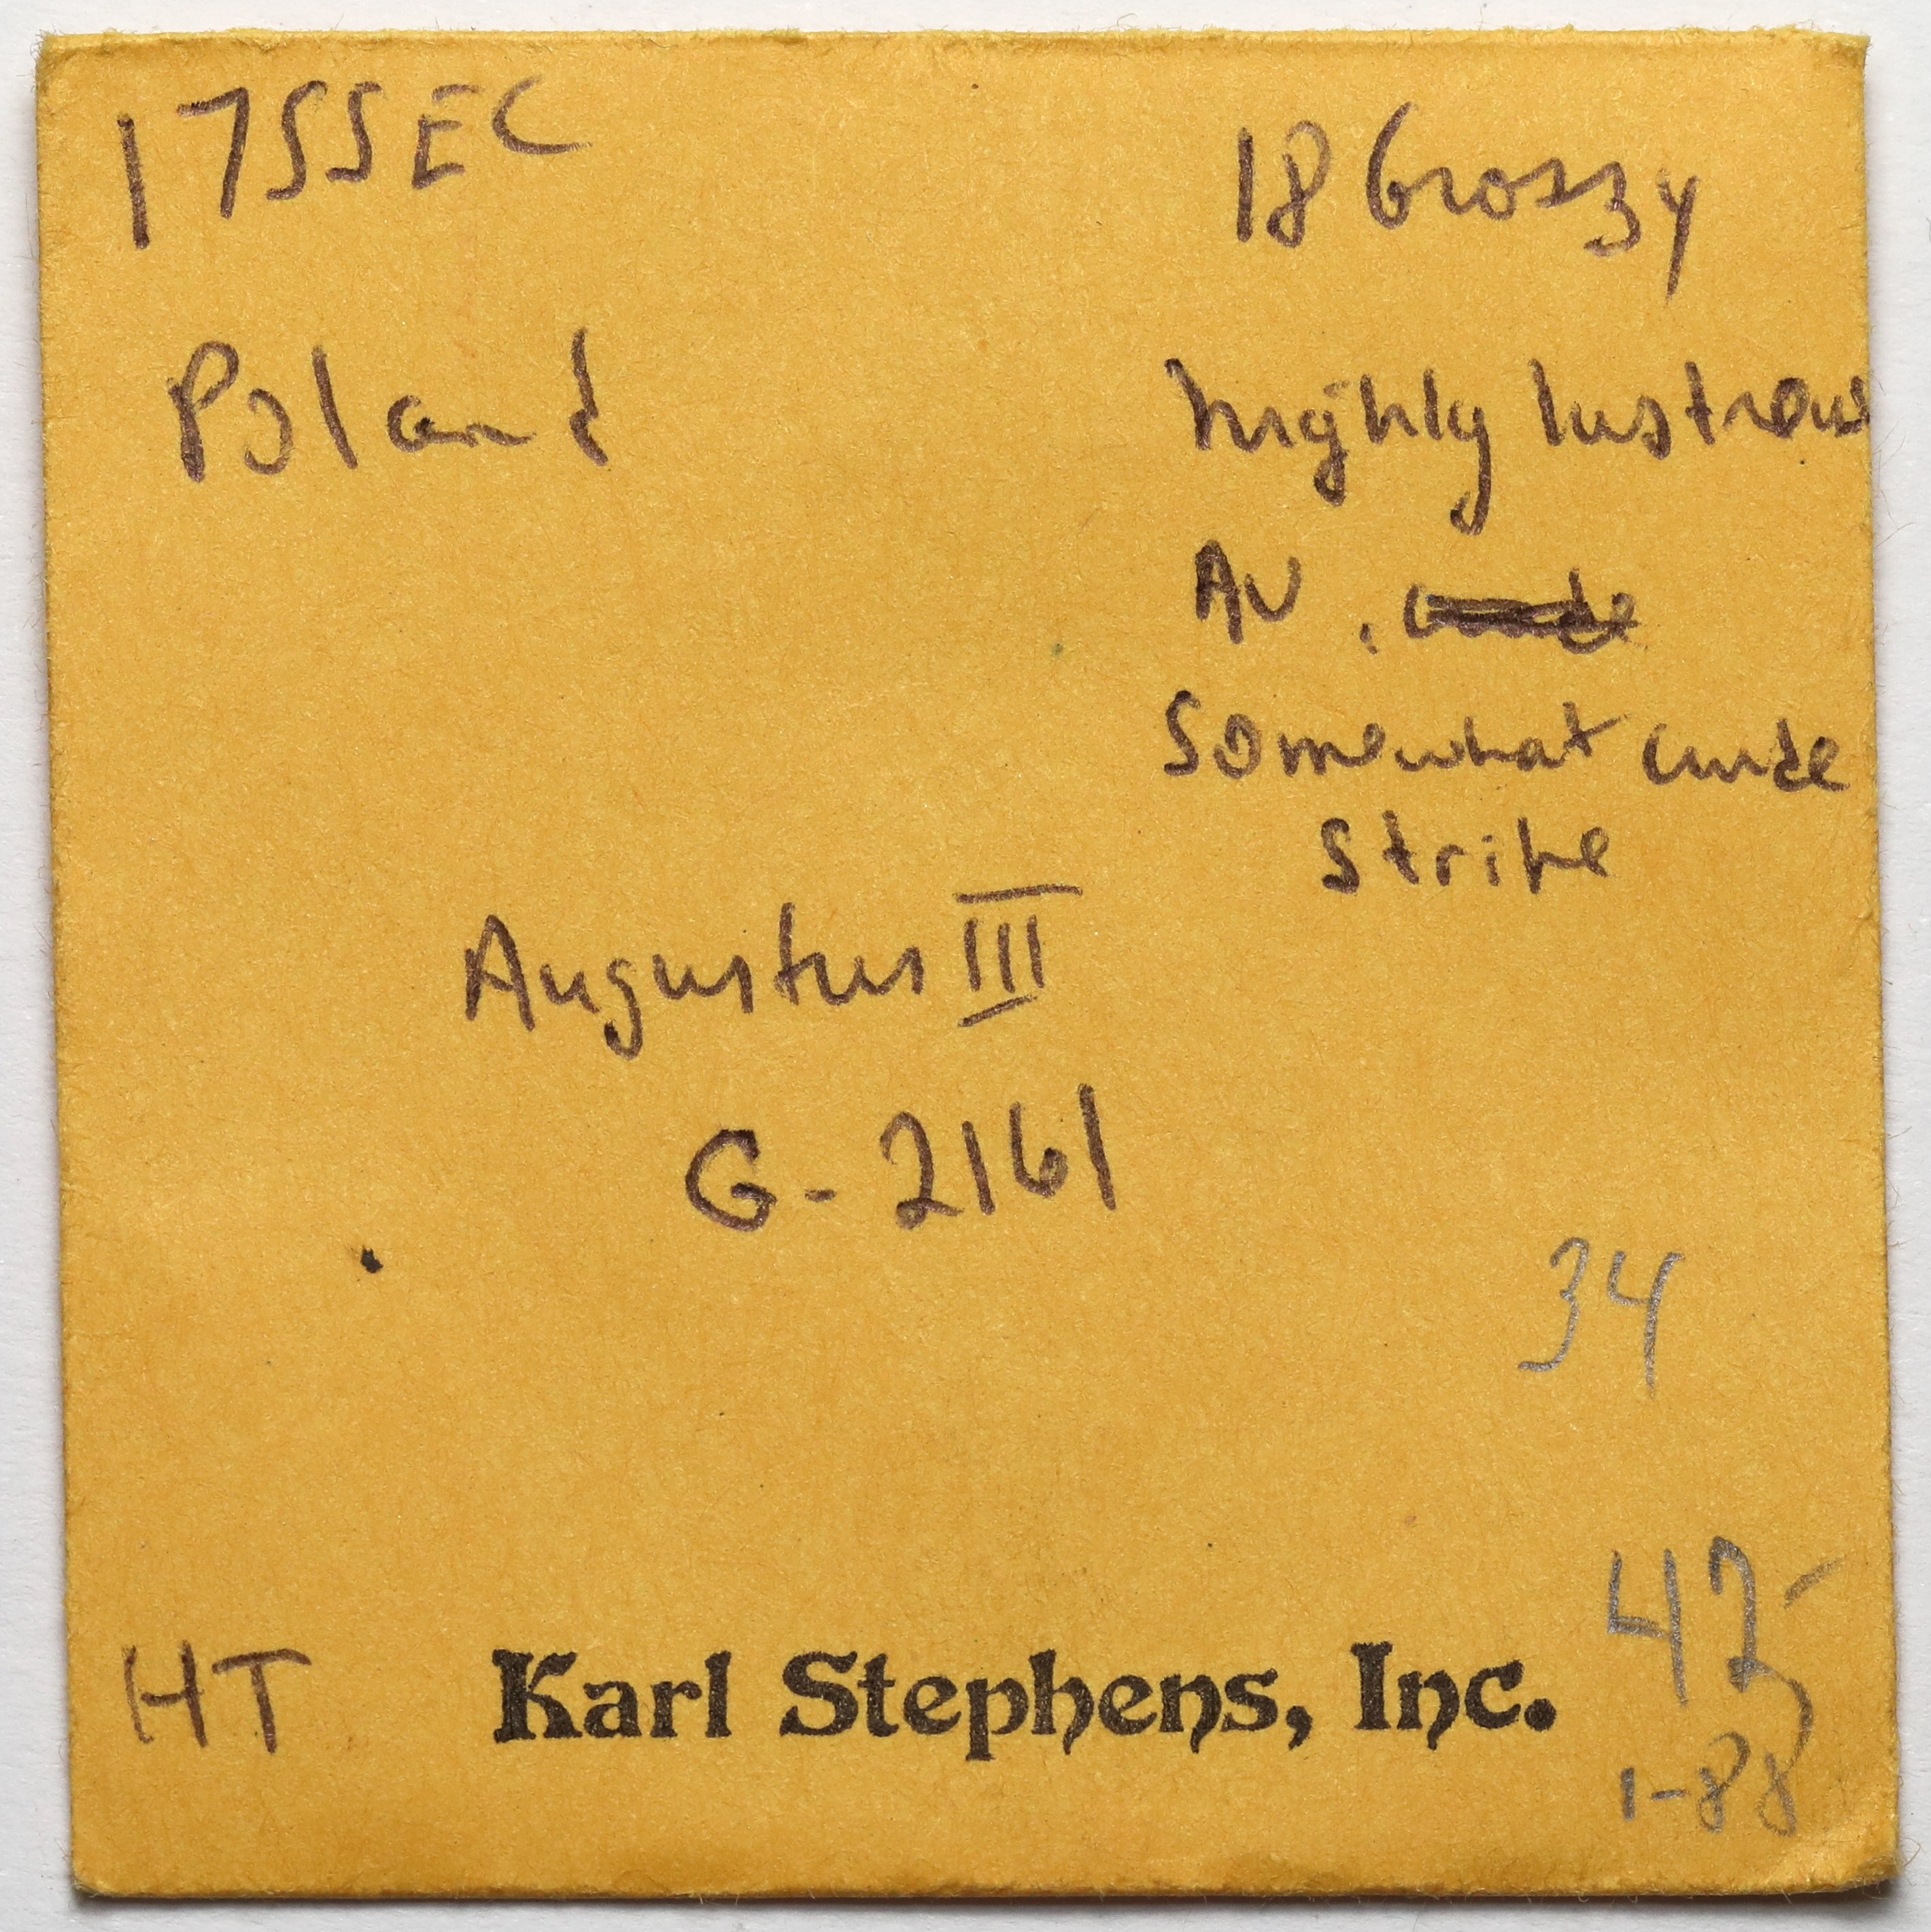 1755EC
18 Groszy
Poland
highly lustrous
AU.
Somewhat crude
Strike
Augustus III
G-2161
34
42-
HT
Karl Stephens, Inc.
1-88